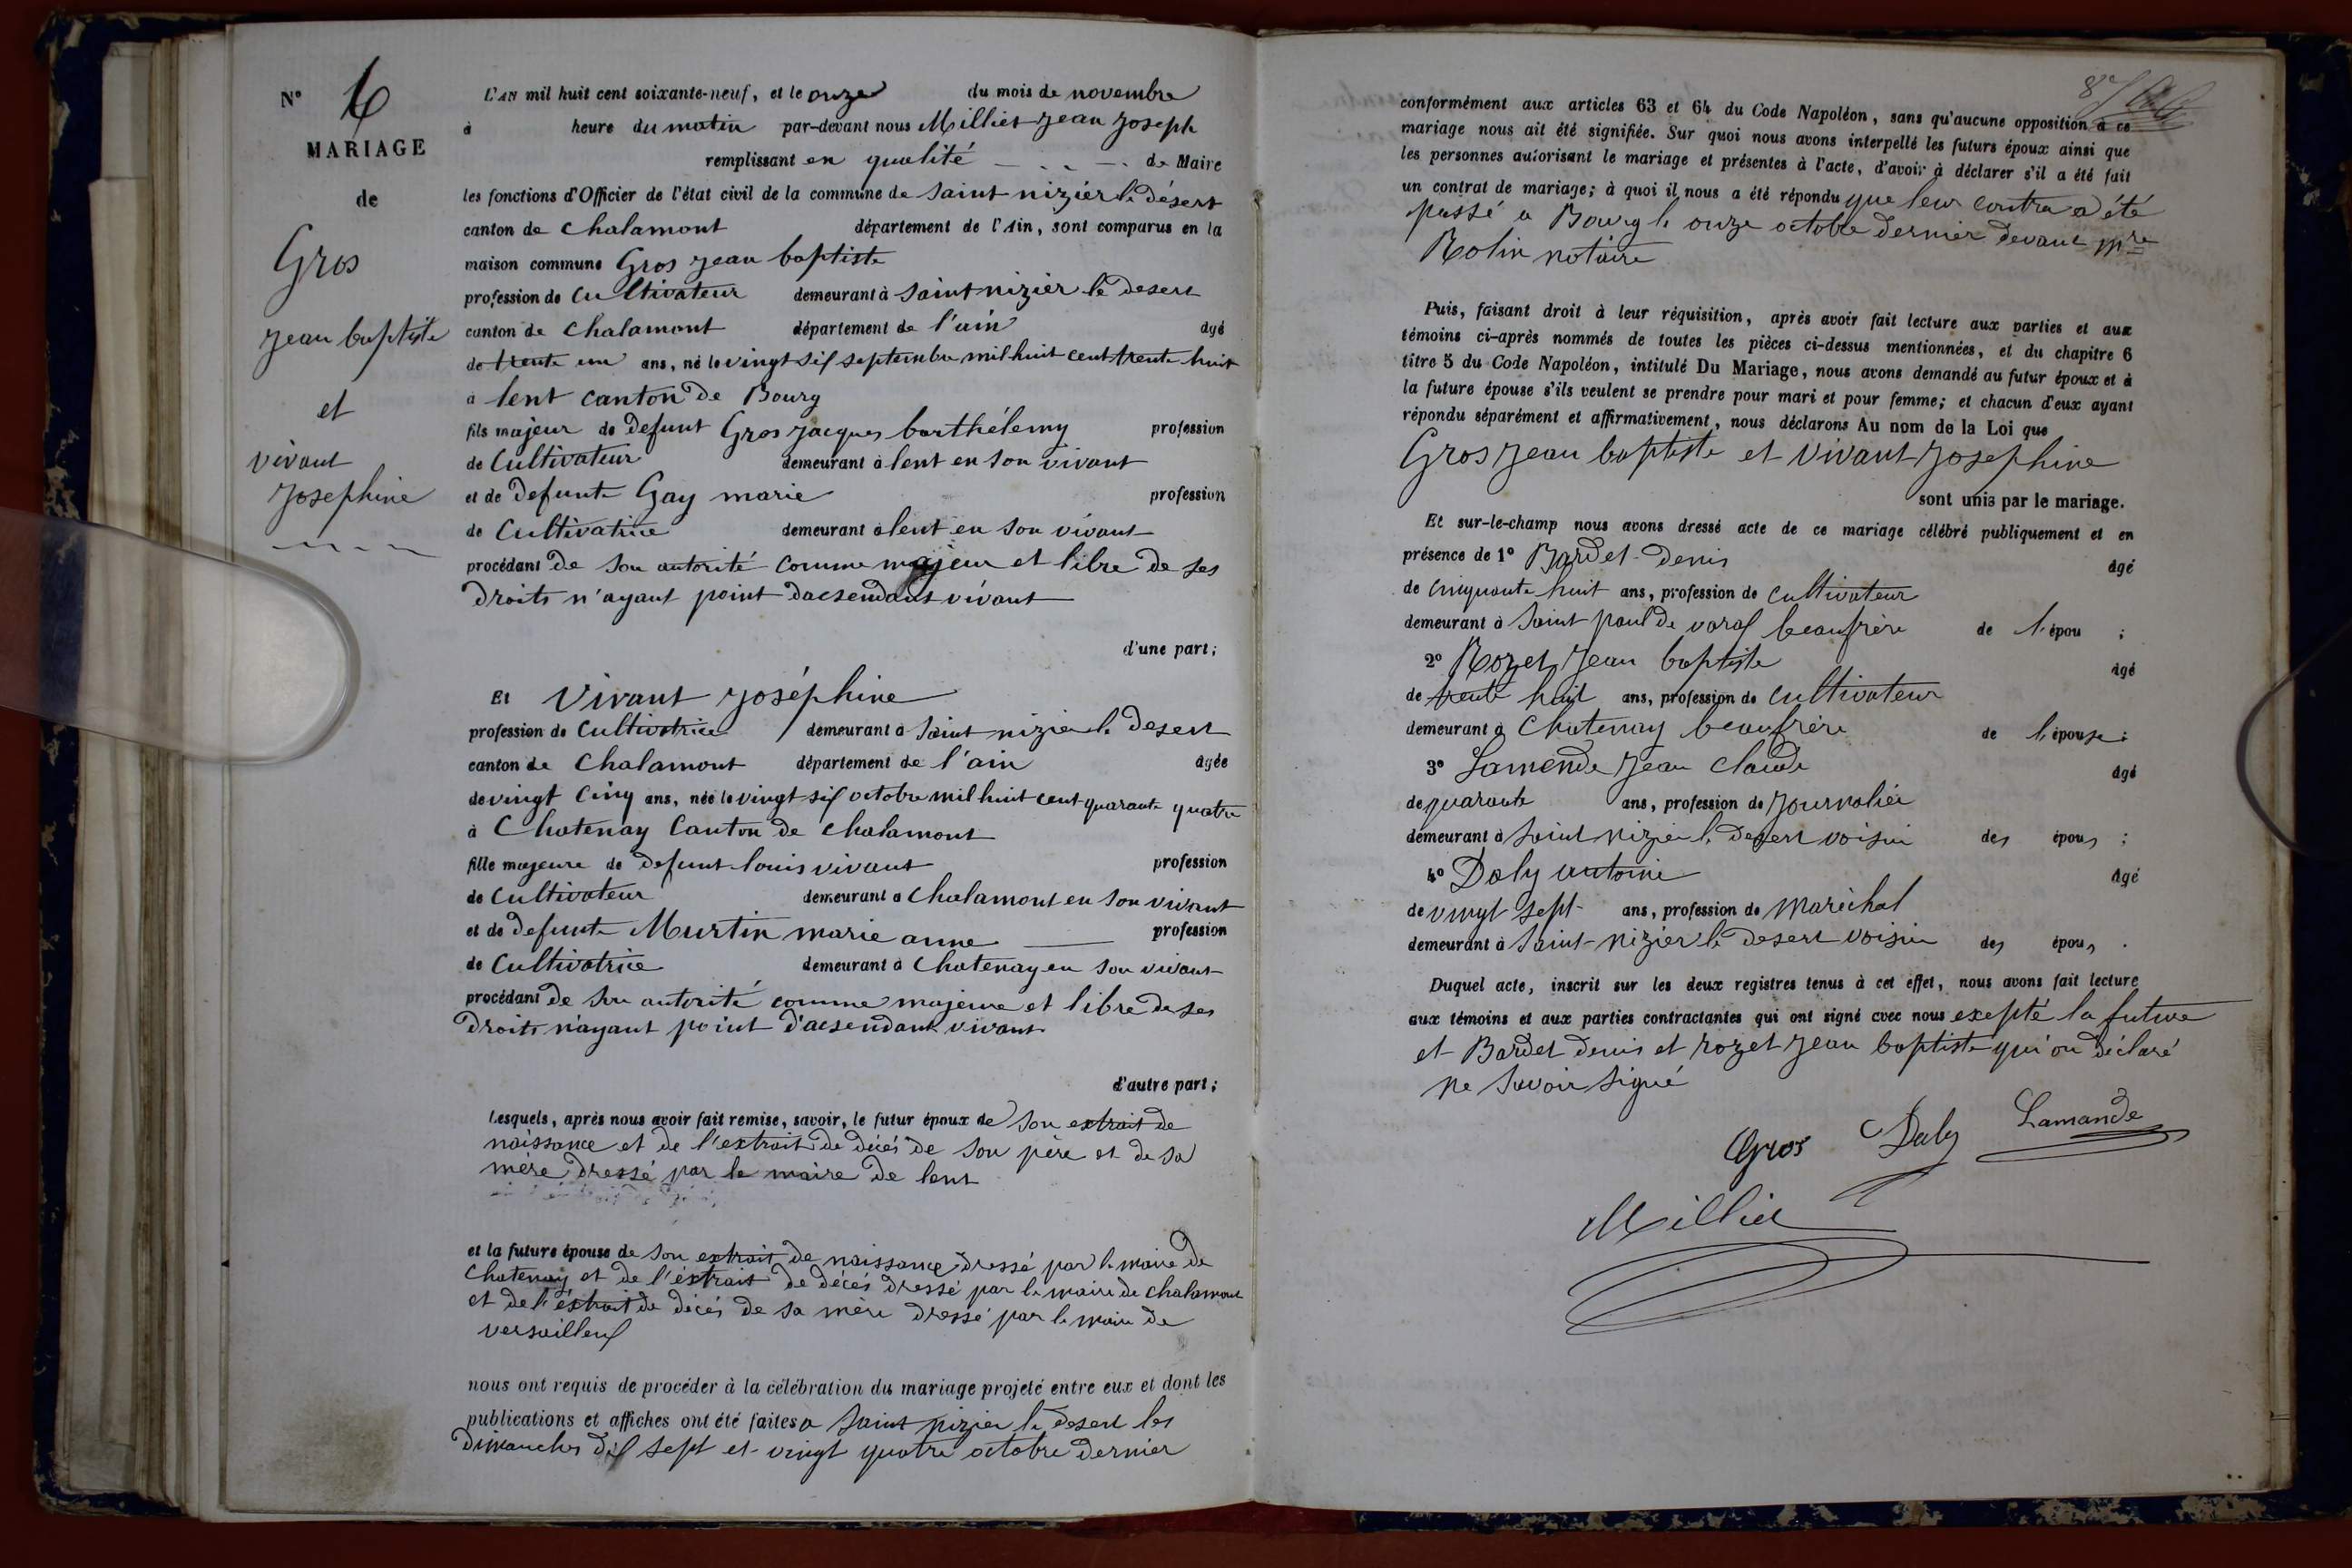 N° 6
MARIAGE
de
Gros
jean baptiste
et
vivant
Josephine
L'AN mil huit cent soixante-neuf, et le onze du mois de novembre
à heure du matin par-devant nous Milliet jean joseph
remplissant en qualité de Maire
les fonctions d'Officier de l'état civil de la commune de Saint nizier le désert
canton de Chalamont département de l'Ain, sont comparus en la
maison commune Gros jean baptiste
profession de Cultivateur demeurant à Saint nizier le desert
canton de Chalamont département de l'ain âgé
de trente un ans, né le vingt six septembre mil huit cent trente huit
à lent canton de Bourg
fils majeur de defunt Gros jacques barthélemy profession
de Cultivateur demeurant à lent en son vivant
et de defunte Gay marie profession
de Cultivatrice demeurant à lent en son vivant
procédant de son autorité comme majeur et libre de ses
droits n'ayant point dacsendant vivant
d'une part;
Et Vivant joséphine
profession de Cultivatrice demeurant à Saint nizier le desert
canton de Chalamont département de l'ain âgée
de vingt cinq ans, née le vingt six octobre mil huit cent quarante quatre
à Chatenay Canton de Chalamont
fille majeure de defunt louis vivant profession
de Cultivateur demeurant à Chalamont en son vivant
et de defunte Murtin marie anne profession
de Cultivatrice demeurant à Chatenay en son vivant
procédant de son autorité comme majeure et libre de ses
droits n'ayant point d'acsendant vivant
d'autre part;
Lesquels, après nous avoir fait remise, savoir, le futur époux de son extrait de
naissance et de l'extrait de décés de son père et de sa
mère dressé par le maire de lent
et la future épouse de son extrait de naissance dressé par le maire de
Chatenay et de l'éxtrait de décés dressé par le maire de Chalamont
et de l'éxtrait de décés de sa mère dressé par le maire de
versailleux
nous ont requis de procéder à la célébration du mariage projeté entre eux et dont les
publications et affiches ont été faites a Saint nizier le desert les
dimanches dix sept et vingt quatre octobre dernier
conformément aux articles 63 et 64 du Code Napoléon, sans qu'aucune opposition à ce
mariage nous ait été signifiée. Sur quoi nous avons interpellé les futurs époux ainsi que
les personnes autorisant le mariage et présentes à l'acte, d'avoir à déclarer s'il a été fait
un contrat de mariage; à quoi il nous a été répondu que leur contra a été
passé a Bourg le onze octobre dernier devant mre
Rolin notaire
Puis, faisant droit à leur réquisition, après avoir fait lecture aux parties et aux
témoins ci-après nommés de toutes les pièces ci-dessus mentionnées, et du chapitre 6
titre 5 du Code Napoléon, intitulé Du Mariage, nous avons demandé au futur époux et à
la future épouse s'ils veulent se prendre pour mari et pour femme; et chacun d'eux ayant
répondu séparément et affirmativement, nous déclarons Au nom de la Loi que
Gros jean baptiste et Vivant Josephine
sont unis par le mariage.
Et sur-le-champ nous avons dressé acte de ce mariage célébré publiquement et en
présence de 1° Bardet denis âgé
de cinquante huit ans, profession de cultivateur
demeurant à Saint paul de varax beaufrère de l'épou ;
2° Rozet jean baptiste âgé
de trente huit ans, profession de cultivateur
demeurant à Chatenay beaufrère de l'épouse;
3° Lamende jean claude âgé
de quarante ans, profession de journalier
demeurant à Saint nizier le desert voisin des épous ;
4° Daly antoine âgé
de vingt sept ans, profession de maréchal
demeurant à Saint nizier le desert voisin des épous .
Duquel acte, inscrit sur les deux registres tenus à cet effet, nous avons fait lecture
aux témoins et aux parties contractantes qui ont signé avec nous exepté la future
et Bardet denis et rozet jean baptiste qui on déclaré
ne savoir signé
Gros Daly Lamande
Milliet